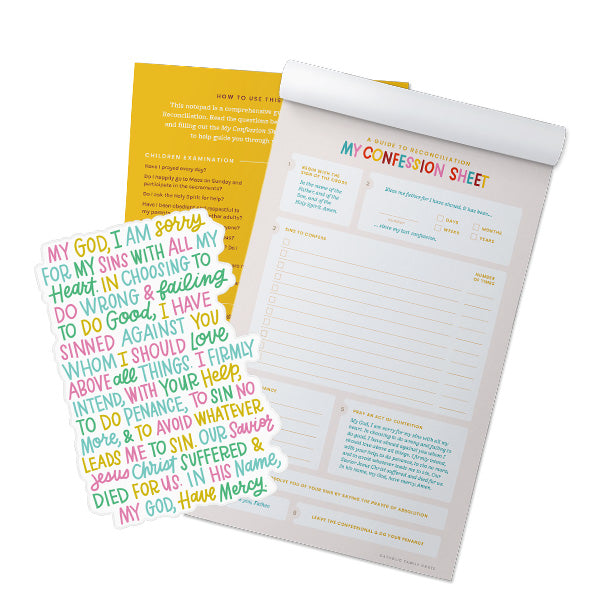 HOW TO USE THIS
This notepad is a comprehensive
Reconciliation. Read the questions
and filling out the My Confession
to help guide you through
CHILDREN EXAMINATION
Have I prayed every day?
Do I happily go to Mass on Sunday and
participate in the sacraments?
Do I ask the Holy Spirit for help?
Have I been obedient and respectful to
my parents
MY GOD, I AM sorry
FOR MY SINS WITH ALL MY
Heart. IN CHOOSING TO
DO WRONG & failing
TO DO Good, I HAVE
SINNED AGAINST YOU
WHOM I SHOULD Love
ABOVE all THINGS. I FIRMLY
INTEND, WITH YOUR Help,
TO DO PENANCE, TO SIN NO
More, & TO AVOID WHATEVER
LEADS ME TO SIN. OUR Savior
Jesus Christ SUFFERED &
DIED FOR US. IN HIS Name,
MY GOD, Have Mercy.
A GUIDE TO RECONCILIATION
MY CONFESSION SHEET
1
BEGIN WITH THE
SIGN OF THE CROSS
In the name of the
Father, and of the
Son, and of the
Holy Spirit. Amen.
2
Bless me father for I have sinned, it has been...
NUMBER
DAYS
MONTHS
WEEKS
YEARS
... since my last confession.
3
SINS TO CONFESS
NUMBER
OF TIMES
5
PRAY AN ACT OF CONTRITION
My God, I am sorry for my sins with all my
heart. In choosing to do wrong and failing to
do good, I have sinned against you whom I
should love above all things. I firmly intend,
with your help, to do penance, to sin no more,
and to avoid whatever leads me to sin. Our
Savior Jesus Christ suffered and died for us.
In his name, my God, have mercy. Amen.
YOU OF YOUR SINS BY SAYING THE PRAYER OF ABSOLUTION
you, Father
8
LEAVE THE CONFESSIONAL & DO YOUR PENANCE
CATHOLIC FAMILY CRATE